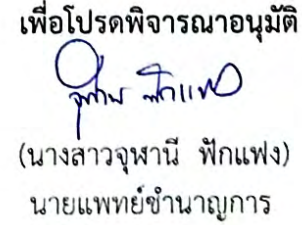 เพื่อโปรดพิจารณาอนุมัติ
(นางสาวจุฬานี ฟักแฟง)
นายแพทย์ชำนาญการ